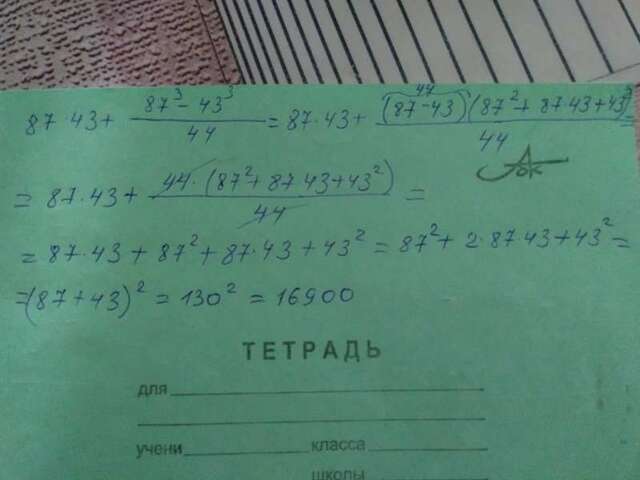 87·43+ (87³-43³)/44 = 87·43+ (87-43)(87²+87·43+43²)/44 =
44
= 87·43+ 44·(87²+87·43+43²)/44 =
= 87·43+87²+87·43+43² = 87²+2·87·43+43² =
=(87+43)² = 130² = 16900
ТЕТРАДЬ
для
учени класса
школы